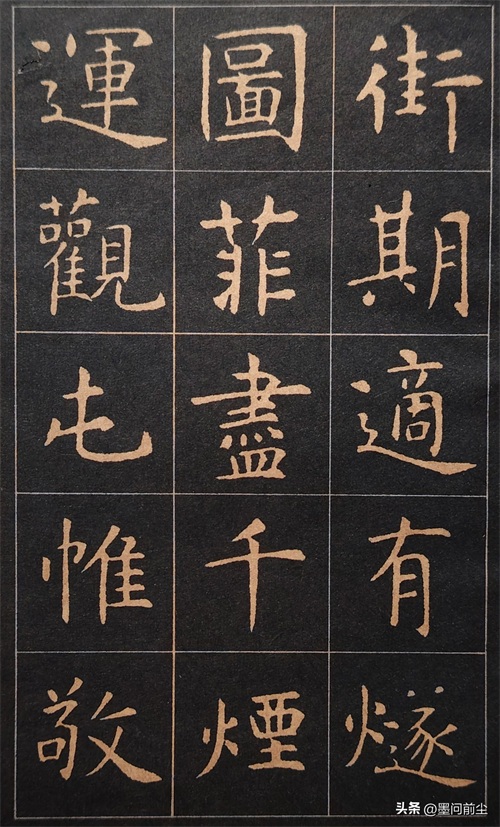 街期適有燧
圖菲盡千煙
運觀屯帷敬
头条 @墨问前尘